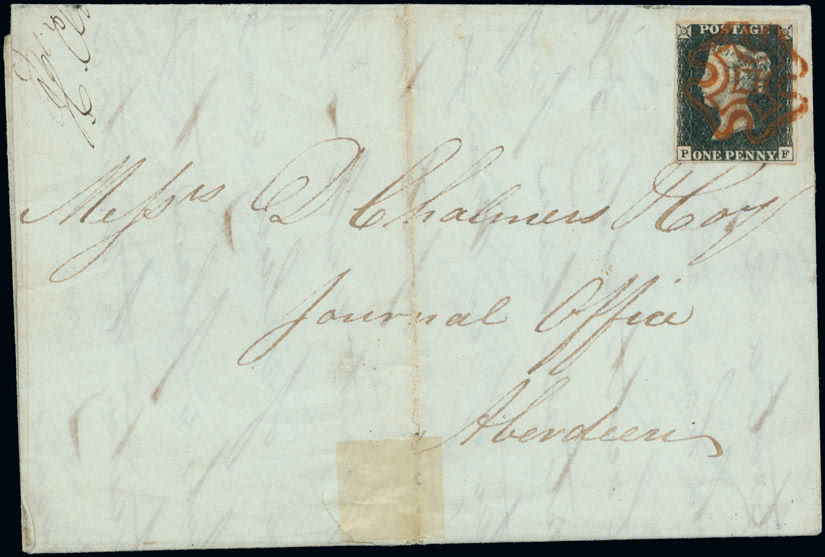 POSTAGE
P ONE PENNY F
Messrs D Chalmers & Coy
Journal Office
Aberdeen